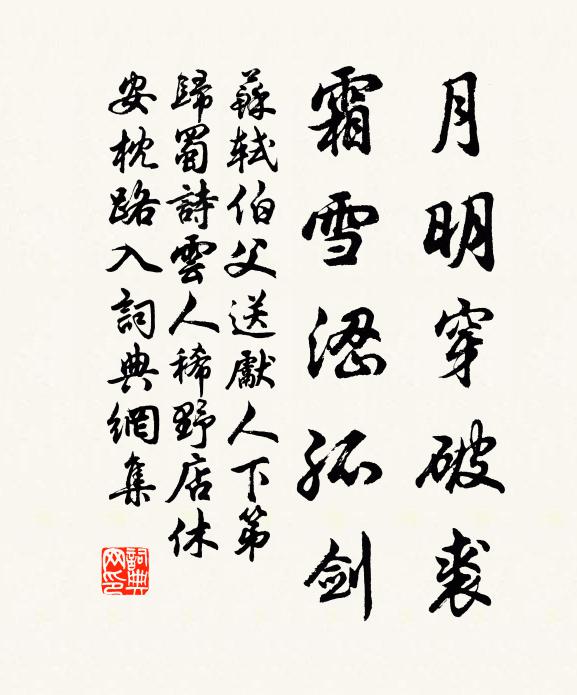 月明穿破裘
霜雪澀孤劍
蘇軾伯父送獻人下第
歸蜀詩雲人稀野店休
安枕路入詞典網集
詞典
网印